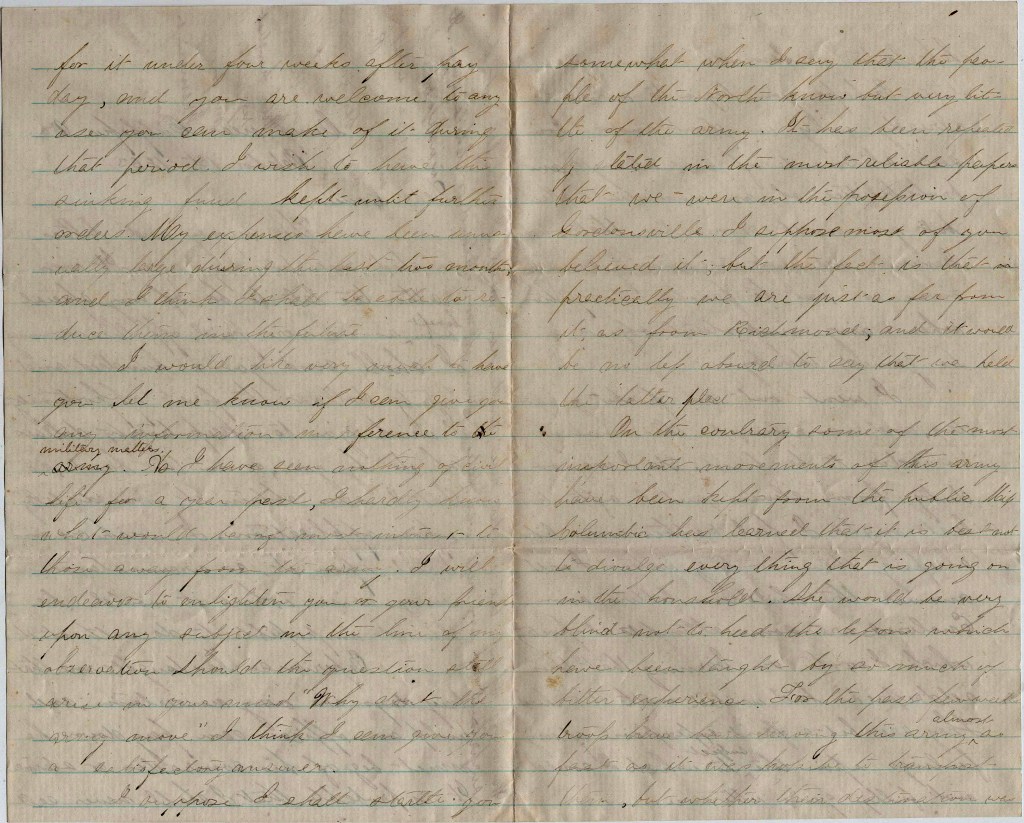 for it under four weeks after pay
day, and you are welcome to any
use you can make of it during
that period I wish to have this
sinking fund kept until further
orders My expences have been unus
ually large during the last two months,
and I think I shall be able to re-
duce them in the future
I would like very much to have
you let me know if I can give you
any information in ference to the
military matters.
army. As I have seen nothing of civil
life for a year past, I hardly know
what would be of most interest to
those away from the army. I will
endeavor to enlighten you or your friends
upon any subject in the line of my
observation should the question
arise in your mind "Why dont the
army move" I think I can give you
a satisfactory answer.
I suppose I shall startle you
somewhat when I say that the peo-
ple of the North know but very lit-
tle of the army. It has been repeated
ly stated in the most reliable papers
that we were in the possession of
Gordonsville I suppose most of you
believed it; but the fact is that
practically we are just as far from
it, as from Richmond; and it would
be no less absurd to say that we held
the latter place
On the contrary some of the most
important movements of this army
have been kept from the public Miss
Columbia has learned that it is best not
to divulge every thing that is going on
in the houshold. She would be very
blind not to heed the lessons which
have been taught by so much of
bitter experience. For the past
almost
troops have been leaving this army, as
fast as it was possible to transport
them, but whether their destination